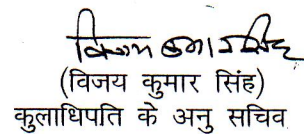 विजय कुमार सिंह
(विजय कुमार सिंह)
कुलाधिपति के अनु सचिव